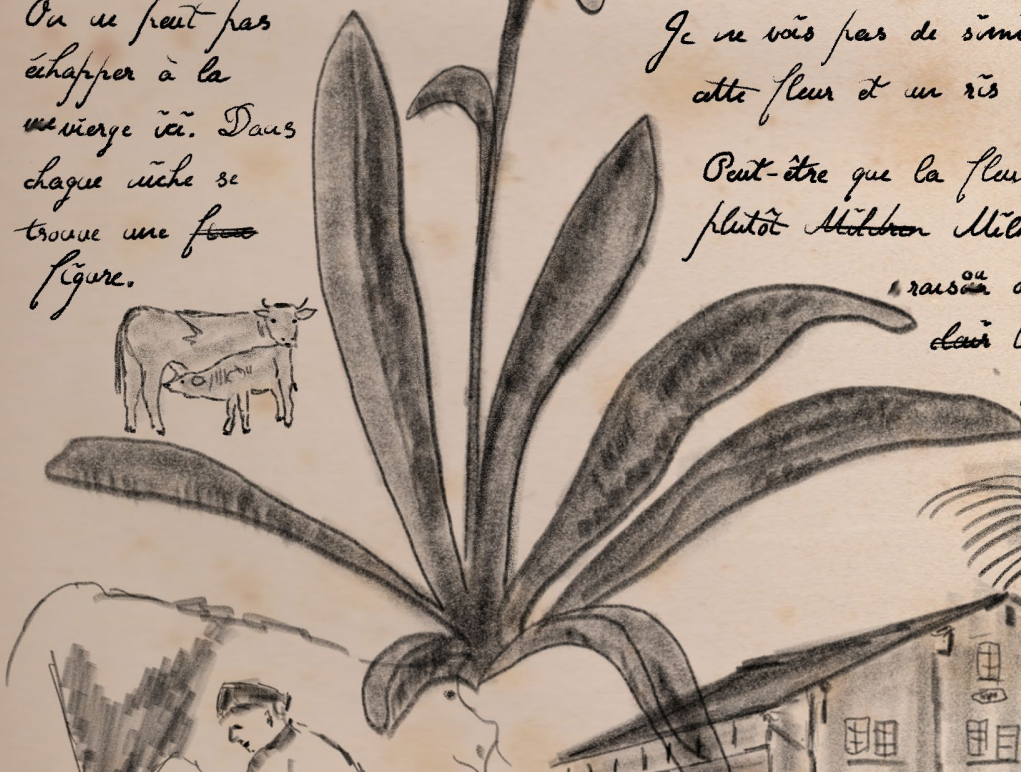 On ne peut pas
échapper à la
vierge ici. Dans
chaque niche se
trouve une
figure.
Je ne vois pas de simi
cette fleur et un ris
Peut-être que la fleur
plutôt Mildren Mil
raison
clair